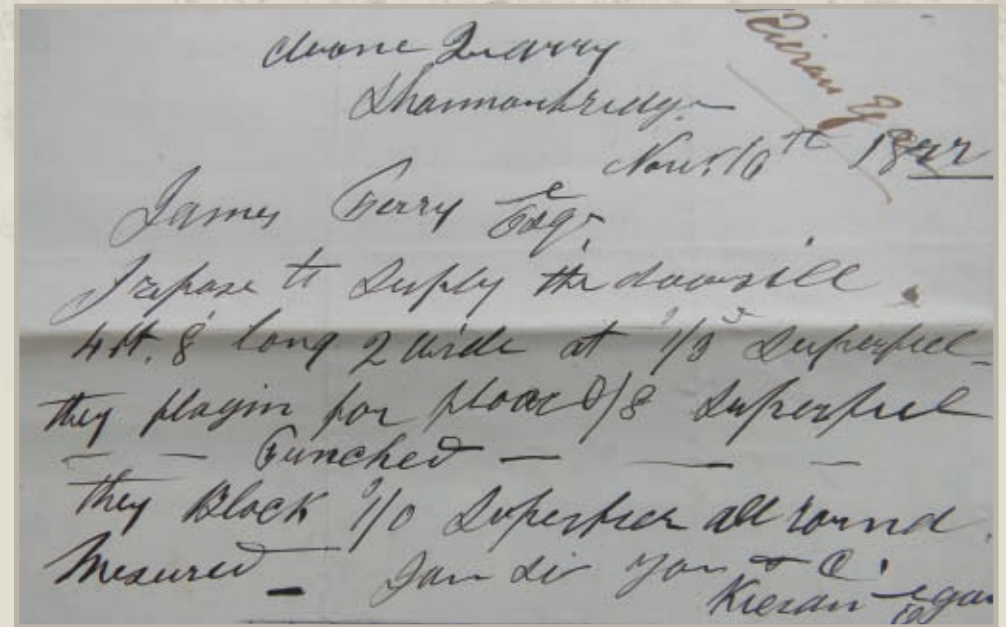 Clonone Quarry
Shannonbridge
Novr. 16th 18
Kieran Egan
James Perry Esqre
I repose to Suply the doorsill.
4ft. 8 long 2 wide at 1/3 Superfiel
they plagin for floor 0/8 Superfiel
— — Punched — — —
they Block 1/0 Superfier all round
Mesured — I am Sir Yours &c.
Kieran Egan